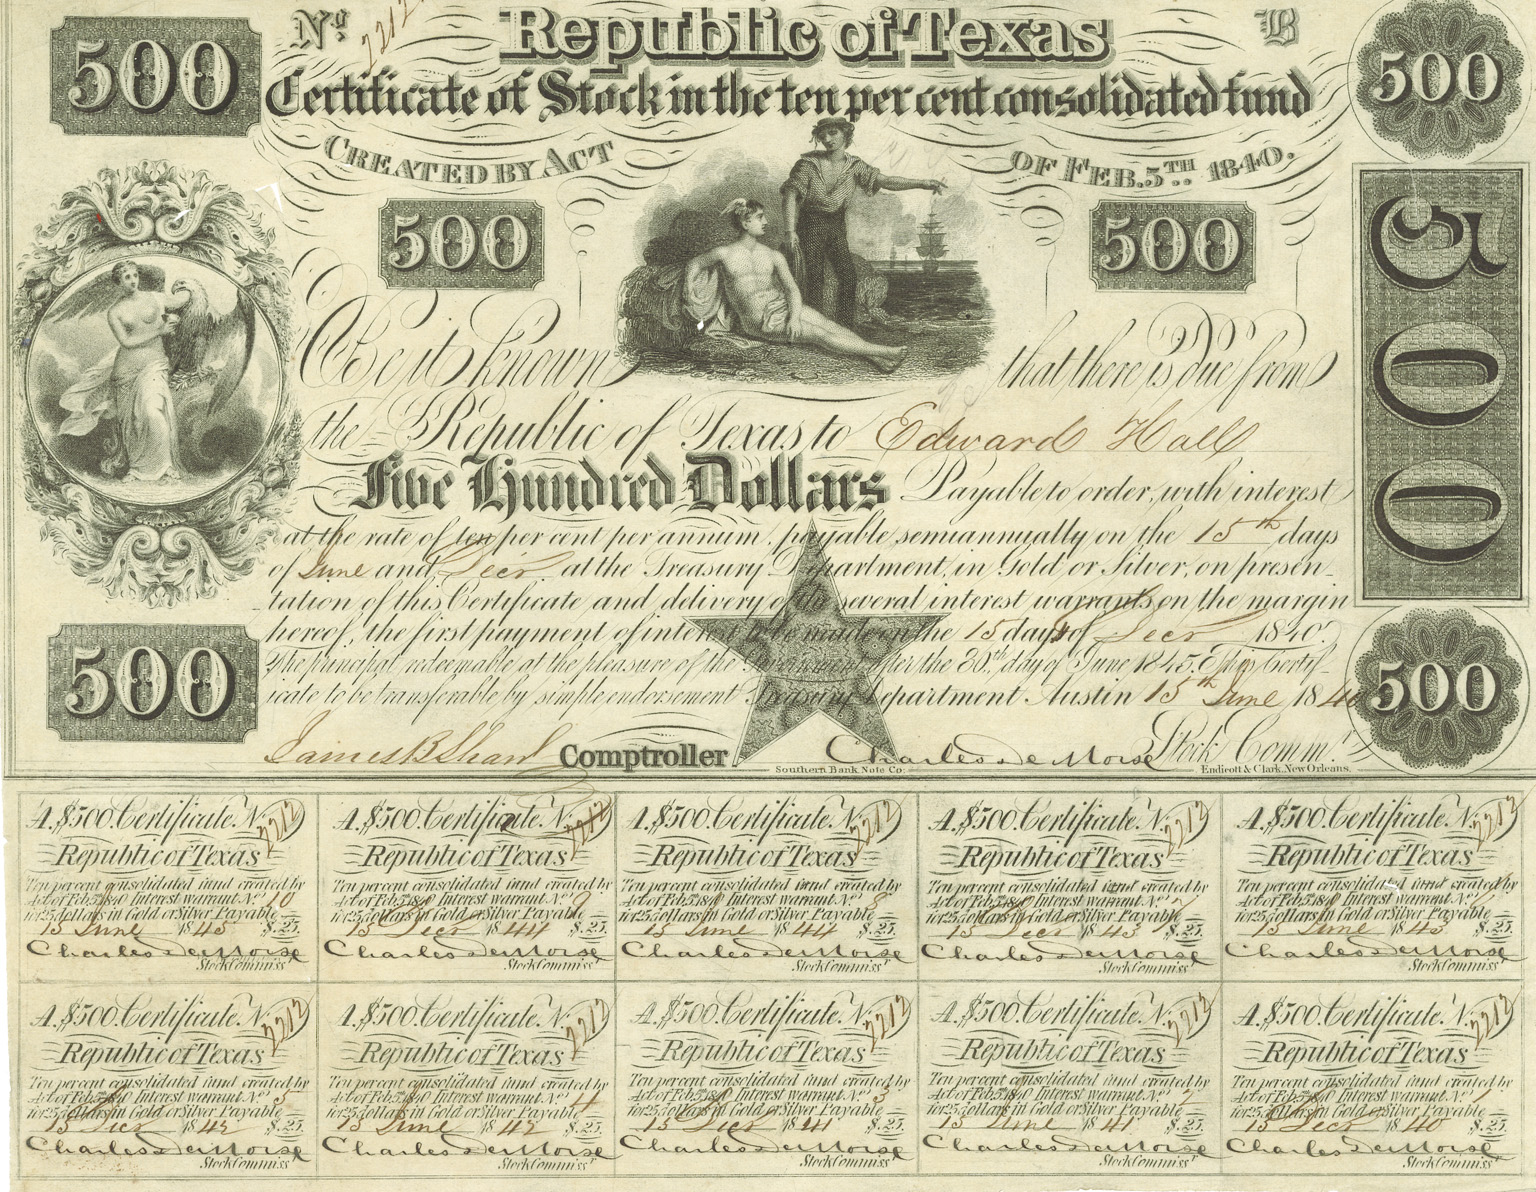 500 No. 2212 Republic of Texas B 500
Certificate of Stock in the ten per cent consolidated fund
Created by Act of Feb. 5th 1840.
500 500
500
Be it known that there is due from
the Republic of Texas to Edward Hall
Five Hundred Dollars Payable to order, with interest
at the rate of ten per cent per annum, payable semiannually on the 15th days
of June and Decr at the Treasury Department, in Gold or Silver, on presen-
tation of this Certificate and delivery of the several interest warrants on the margin
hereof, the first payment of interest to be made on the 15 day of Decr 1840.
The principal redeemable at the pleasure of the Government after the 30th day of June 1845. This Certif-
icate to be transferable by simple endorsement Treasury Department Austin 15th June 1840
500 500
James B Shaw Comptroller Charles De Morse Stock Commr.
Southern Bank Note Co. Endicott & Clark, New Orleans.
A. $500. Certificate. N. 2212
Republic of Texas
Ten per cent consolidated fund created by
Act of Feb. 5. 1840 Interest warrant No. 10
for 25 dollars in Gold or Silver Payable
15 June 1845 $.25.
Charles De Morse
Stock Commiss.r
A. $500. Certificate. N. 2212
Republic of Texas
Ten per cent consolidated fund created by
Act of Feb. 5. 1840 Interest warrant No. 9
for 25 dollars in Gold or Silver Payable
15 Decr 1844 $.25.
Charles De Morse
Stock Commiss.r
A. $500. Certificate. N. 2212
Republic of Texas
Ten per cent consolidated fund created by
Act of Feb. 5. 1840 Interest warrant No. 8
for 25 dollars in Gold or Silver Payable
15 June 1844 $.25.
Charles De Morse
Stock Commiss.r
A. $500. Certificate. N. 2212
Republic of Texas
Ten per cent consolidated fund created by
Act of Feb. 5. 1840 Interest warrant No. 7
for 25 dollars in Gold or Silver Payable
15 Decr 1843 $.25.
Charles De Morse
Stock Commiss.r
A. $500. Certificate. N. 2212
Republic of Texas
Ten per cent consolidated fund created by
Act of Feb. 5. 1840 Interest warrant No.
for 25 dollars in Gold or Silver Payable
15 June 1843 $.25.
Charles De Morse
Stock Commiss.r
A. $500. Certificate. N. 2212
Republic of Texas
Ten per cent consolidated fund created by
Act of Feb. 5. 1840 Interest warrant No. 5
for 25 dollars in Gold or Silver Payable
15 Decr 1842 $.25.
Charles De Morse
Stock Commiss.r
A. $500. Certificate. N. 2212
Republic of Texas
Ten per cent consolidated fund created by
Act of Feb. 5. 1840 Interest warrant No. 4
for 25 dollars in Gold or Silver Payable
15 June 1842 $.25.
Charles De Morse
Stock Commiss.r
A. $500. Certificate. N. 2212
Republic of Texas
Ten per cent consolidated fund created by
Act of Feb. 5. 1840 Interest warrant No. 3
for 25 dollars in Gold or Silver Payable
15 Decr 1841 $.25.
Charles De Morse
Stock Commiss.r
A. $500. Certificate. N. 2212
Republic of Texas
Ten per cent consolidated fund created by
Act of Feb. 5. 1840 Interest warrant No. 2
for 25 dollars in Gold or Silver Payable
15 June 1841 $.25.
Charles De Morse
Stock Commiss.r
A. $500. Certificate. N. 2212
Republic of Texas
Ten per cent consolidated fund created by
Act of Feb. 5. 1840 Interest warrant No. 1
for 25 dollars in Gold or Silver Payable
15 Decr 1840 $.25.
Charles De Morse
Stock Commiss.r